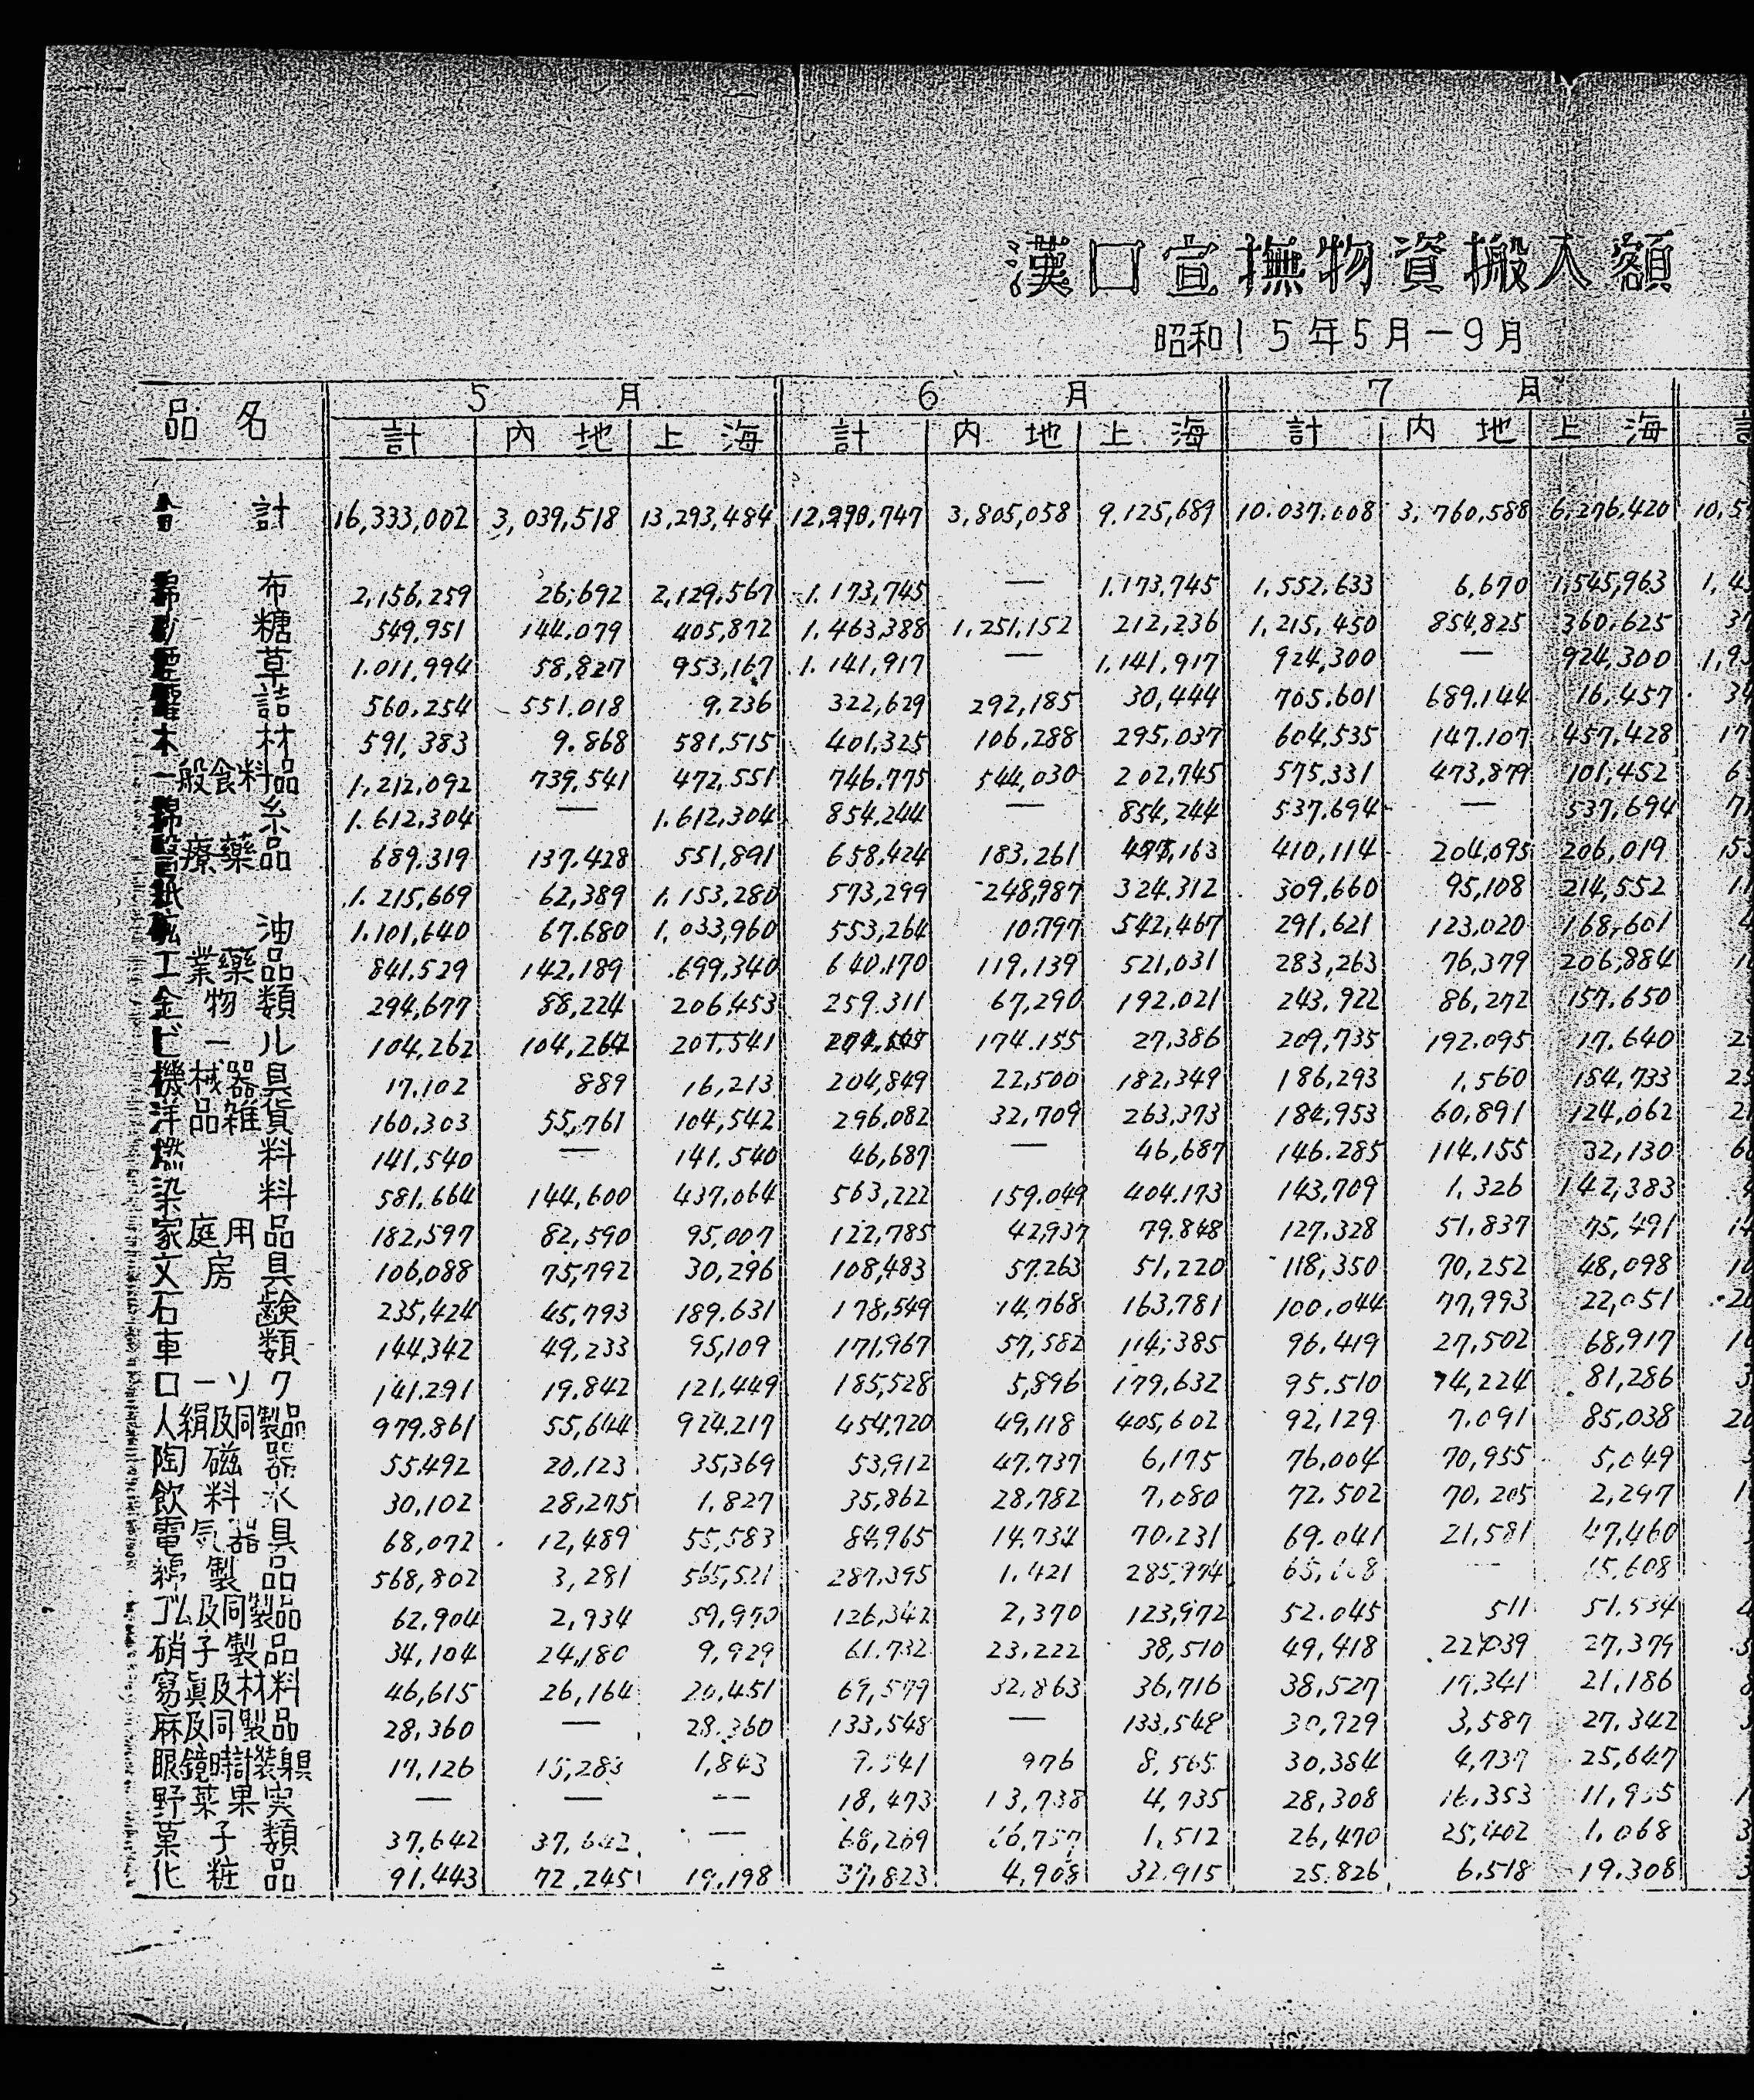 漢口宣撫物資搬入額
昭和15年5月-9月
品名 5月 6月 7月
計 內地 上海 計 內地 上海 計 內地 上海
合計 16,333,002 3,039,518 13,293,484 3,805,058 9,125,689 10.037.008 3,760,588 6,276,420 10,5
布 2,156,259 26,692 2,129,567 1.173,745 — 1.173,745 1,552,633 6,670 1,545,963 1,4
糖 549,951 144.079 405,872 1.463,388 1,251,152 212,236 1,215,450 854,825 360,625 3
草 1.011,994 58,827 953,167 1.141,917 — 1,141,917 924,300 — 924,300 1,9
詰 560,254 551.018 9,236 322,629 292,185 30,444 705.601 689.144 16,457 34
木材 591,383 9.868 581,515 401,325 106,288 295,037 604,535 147.107 457,428 17
一般食料品 1,212,092 739,541 472,551 746,775 544,030 202,745 575,331 473,879 101,452 6
糸 1.612,304 — 1.612,304 854,244 — 854,244 537,694 — 537,694 71
療藥品 689.319 137.428 551,891 658,424 183.261 410,114 204,095 206,019 153
紙 1.215,669 62,389 1.153,280 573,299 248,987 324.312 309,660 95,108 214,552 11
油 1.101,640 67.680 1,033,960 553,264 10.797 542,467 291.621 123,020 168,601 4
工業藥品 841.529 142,189 699,340 640,170 119,139 521,031 283,263 76,379 206,884 1
金物類 294,677 88,224 206,453 259.311 67,290 192.021 243,922 86,272 157.650
ビール 104,262 174.155 27,386 209,735 192,095 17,640 2
機械器具 17.102 889 16,213 204,849 22,500 182,349 186,293 1,560 184,733 2
洋品雑貨 160,303 55,761 104,542 296,082 32,709 263,373 184,953 60,891 124,062 2
燃料 141,540 — 141,540 46,687 — 46,687 146.285 114,155 32,130 6
染料 581,664 144,600 437,064 563,222 159,049 404,173 143,709 1,326 142,383 4
家庭用品 182,597 82,590 95,007 122,785 42,937 79,848 127,328 51,837 75,491 14
文房具 106,088 75,792 30,296 108,483 57,263 51,220 118,350 70,252 48,098 10
石鹸 235,424 45,793 189.631 178,549 14,768 163,781 100,044 77,993 22,051 20
車類 144,342 49,233 95,109 171,967 57,582 114,385 96,419 27,502 68,917 10
ローソク 141.291 19,842 121,449 185,528 5,896 179,632 95.510 81,286 3
人絹及同製品 979.861 55,644 924,217 454,720 49,118 405,602 92,129 7,091 85,038 20
陶磁器 55,492 20,123 35,369 53,912 47,737 6,175 76,004 70,955 5,049
飲料水 30,102 28,275 1,827 35,862 28,782 7,080 72,502 70,205 2,297 1
電気器具 68,072 12,489 55,583 84,965 14,734 70,231 69,041 21,581 47,460
綿製品 568,802 3,281 565,521 287,395 1,421 285,974
ゴム及同製品 62,904 2,934 59,970 126,342 2,370 123,972 52,045 511 51,534 4
硝子製品 34,104 24,180 9,929 61,732 23,222 38,510 49,418 22,039 27,379 3
寫眞及材料 46,615 26,164 20,451 69,579 32,863 36,716 38,527 17,341 21,186 8
麻及同製品 28,360 — 28,360 133,548 — 133,548 30,929 3,587 27,342 3
眼鏡時計裝身具 17,126 15,283 1,843 9,541 976 8,565 30,384 4,737 25,647
野菜果実 — — — 18,473 13,738 4,735 28,308 16,353 11,955 1
菓子類 37,642 37,642 — 68,269 66,757 1,512 26,470 25,402 1,068 3
化粧品 91,443 72,245 19,198 37,823 4,908 32,915 25,826 6,518 19,308 3